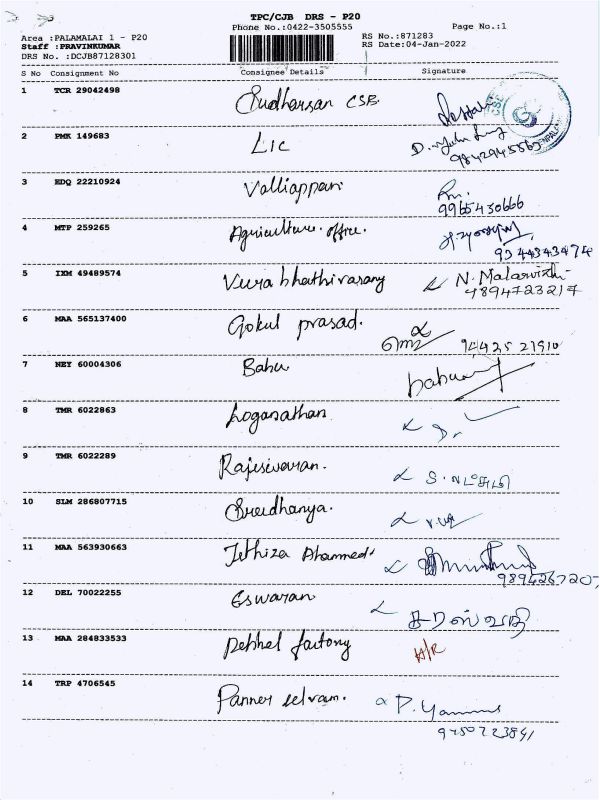 TPC/CJB DRS - P20
Phone No.:0422-3505555
Page No.:1
Area :PALAMALAI 1 - P20
Staff :PRAVINKUMAR
DRS No. :DCJB87128301
RS No.:871283
RS Date:04-Jan-2022
S No Consignment No Consignee Details Signature
1 TCR 29042498 Sudharsan CSB
2 PMK 149683 LIC
3 HDQ 22210924 Valliappan
9965430666
4 MTP 259265 Agriculture office.
9344343474
5 IXM 49489574 N. Malarvizhi
4894723217
6 MAA 565137400 Gokul prasad.
94425 21910
7 NEY 60004306 Babu babu
8 TMR 6022863 Loganathan
9 TMR 6022289 Rajesivaran.
10 SLM 286807715 Sreedhanya.
11 MAA 563930663
12 DEL 70022255 Eswaran சரஸ்வதி
13 MAA 284833533 factory H/R
14 TRP 4706545 Panner selvam. P. Yamuna
9750723841